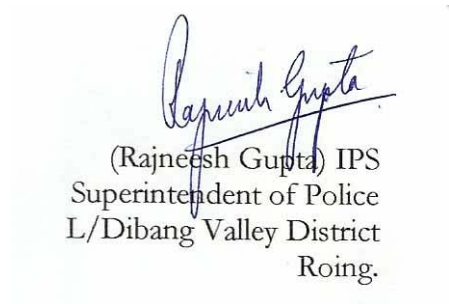 Rajneesh Gupta
(Rajneesh Gupta) IPS
Superintendent of Police
L/Dibang Valley District
Roing.